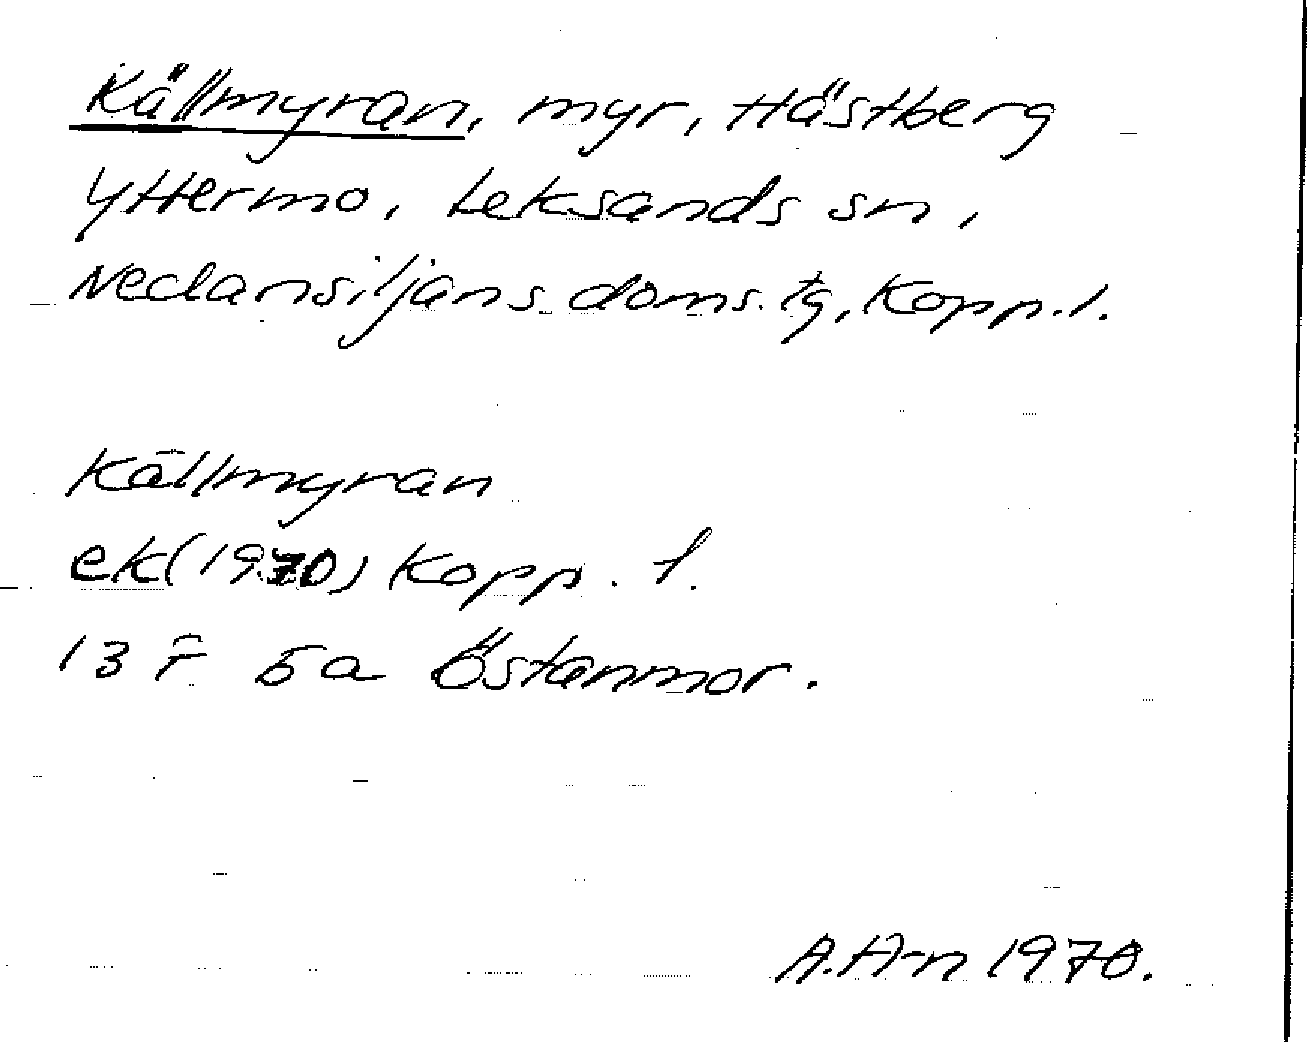 Källmyran, myr, Hästberg
Yttermo, Leksands sn,
Nedansiljans doms.tg, Kopp.l.
Källmyran
ek(1970) Kopp. l.
13 F 5a Östanmor.
A.H-n 1970.